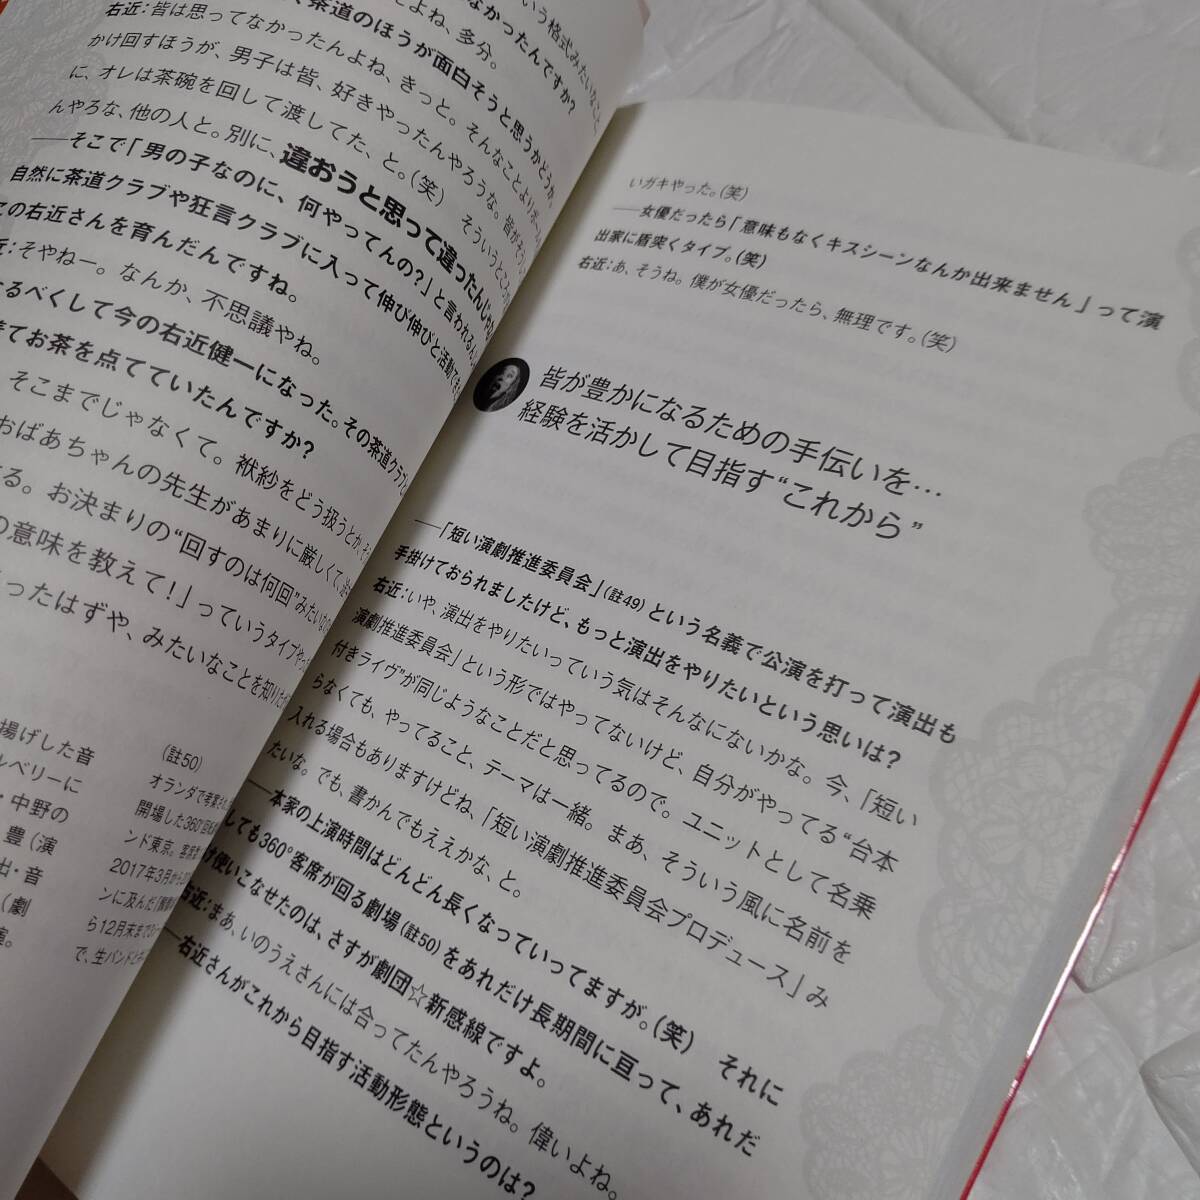 いう格式みたいなもん
なかったんですか?
よね、多分。
く茶道のほうが面白そうと思うかどうか、
右近：皆は思ってなかったんよね、きっと。そんなことよりボール
かけ回すほうが、男子は皆、好きやったんやろうな。皆がそう
に、オレは茶碗を回して渡してた、と。(笑) そういうところが
んやろな、他の人と。別に、違おうと思って違ったんじゃ
――そこで「男の子なのに、何やってんの?」と言われるん
自然に茶道クラブや狂言クラブに入って伸び伸びと活動でき
この右近さんを育んだんですね。
近：そやねー。なんか、不思議やね。
なるべくして今の右近健一になった。その茶道クラブ
てお茶を点てていたんですか?
そこまでじゃなくて。袱紗をどう扱うとか、そ
おばあちゃんの先生があまりに厳しくて、
る。お決まりの“回すのは何回”みたいなの
の意味を教えて!」っていうタイプやっ
ったはずや、みたいなことを知りたが
揚げした音
ルベリーに
・中野の
豊(演
出・音
(劇
(註50)
オランダで考案され
開場した360°
ンド東京。客席
2017年3月から
ンに及んだ『髑髏
ら12月末まで
で、生バンド
いガキやった。(笑)
――女優だったら「意味もなくキスシーンなんか出来ません」って演
出家に盾突くタイプ。(笑)
右近：あ、そうね。僕が女優だったら、無理です。(笑)
皆が豊かになるための手伝いを…
経験を活かして目指す“これから”
――「短い演劇推進委員会」(註49)という名義で公演を打って演出も
手掛けておられましたけど、もっと演出をやりたいという思いは?
右近：いや、演出をやりたいっていう気はそんなにないかな。今、「短い
演劇推進委員会」という形ではやってないけど、自分がやってる“台本
付きライヴ”が同じようなことだと思ってるので。ユニットとして名乗
らなくても、やってること、テーマは一緒。まあ、そういう風に名前を
入れる場合もありますけどね、「短い演劇推進委員会プロデュース」み
たいな。でも、書かんでもええかな、と。
――本家の上演時間はどんどん長くなっていってますが。(笑) それに
しても360°客席が回る劇場(註50)をあれだけ長期間に亘って、あれだ
け使いこなせたのは、さすが劇団☆新感線ですよ。
右近：まあ、いのうえさんには合ってたんやろうね。偉いよね。
――右近さんがこれから目指す活動形態というのは?